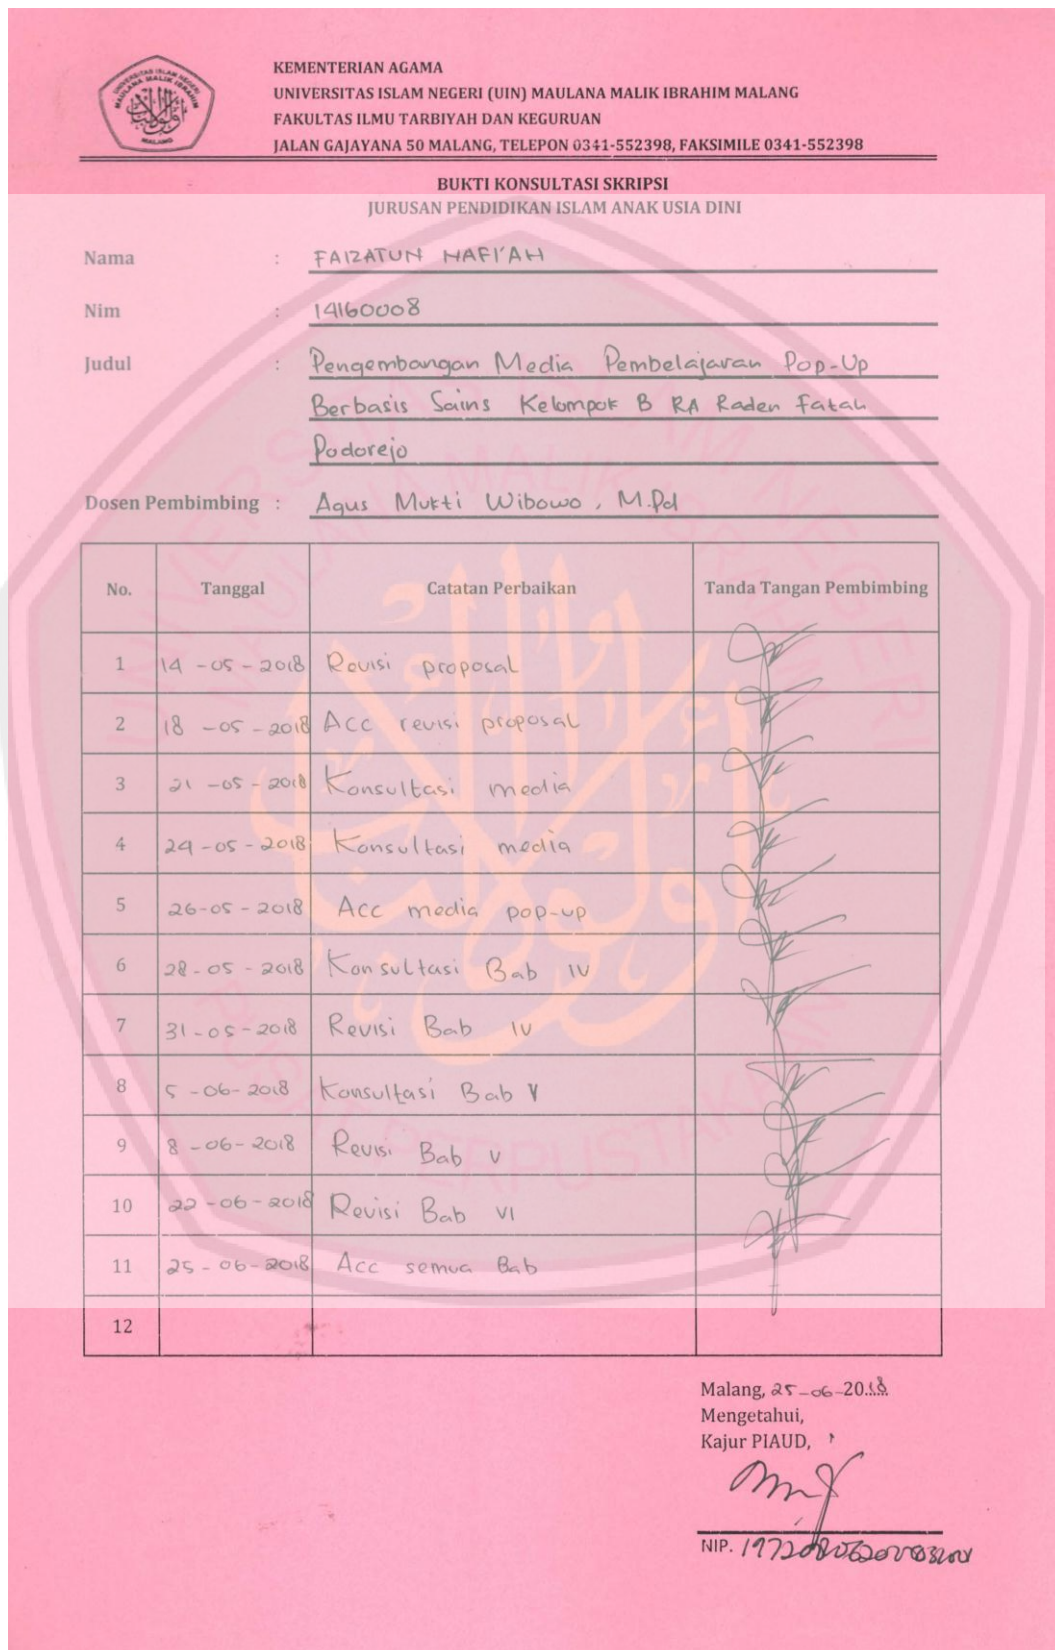 KEMENTERIAN AGAMA
UNIVERSITAS ISLAM NEGERI (UIN) MAULANA MALIK IBRAHIM MALANG
FAKULTAS ILMU TARBIYAH DAN KEGURUAN
JALAN GAJAYANA 50 MALANG, TELEPON 0341-552398, FAKSIMILE 0341-552398
BUKTI KONSULTASI SKRIPSI
JURUSAN PENDIDIKAN ISLAM ANAK USIA DINI
Nama : FAIZATUN NAFI'AH
Nim : 14160008
Judul : Pengembangan Media Pembelajaran Pop-Up
Berbasis Sains Kelompok B RA Raden Fatah
Podorejo
Dosen Pembimbing : Agus Mukti Wibowo, M.Pd
No. Tanggal Catatan Perbaikan Tanda Tangan Pembimbing
1 14-05-2018 Revisi proposal
2 18-05-2018 Acc revisi proposal
3 21-05-2018 Konsultasi media
4 24-05-2018 Konsultasi media
5 26-05-2018 Acc media pop-up
6 28-05-2018 Konsultasi Bab IV
7 31-05-2018 Revisi Bab IV
8 5-06-2018 Konsultasi Bab V
9 8-06-2018 Revisi Bab V
10 22-06-2018 Revisi Bab VI
11 25-06-2018 Acc semua Bab
12
Malang, 25-06-2018
Mengetahui,
Kajur PIAUD,
NIP.